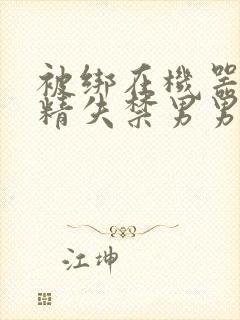 被绑在機器
精失禁男男
江坤